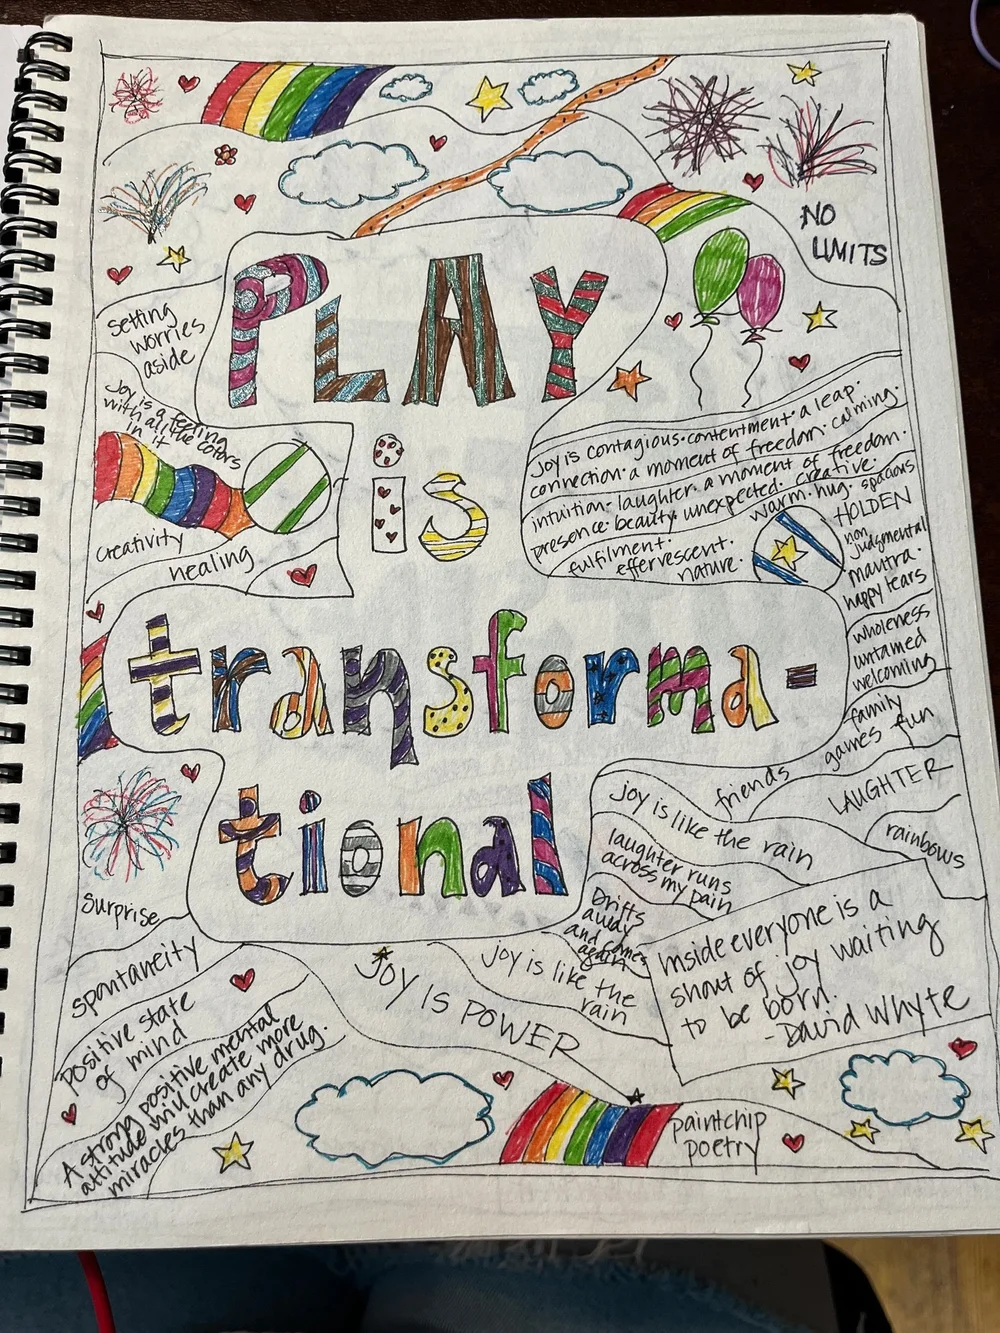 NO
LIMITS
PLAY
is
transforma-
tional
Setting
worries
aside
Joy is a feeling
with all the colors
in it
creativity
healing
Joy is contagious · contentment · a leap ·
connection · a moment of freedom · calming ·
intuition · laughter · a moment of freedom ·
presence · beauty · unexpected · creative ·
fulfilment ·
effervescent ·
nature ·
warm · hug · spacious
HOLDEN
non
judgmental
mantra ·
happy tears
wholeness
untamed
welcoming
family
games - fun
friends
LAUGHTER
rainbows
joy is like the rain
laughter runs
across my pain
Drifts
away
and comes
again
joy is like the
rain
Inside everyone is a
shout of joy waiting
to be born.
- David Whyte
surprise
spontaneity
positive state
of mind
A strong positive mental
attitude will create more
miracles than any drug.
JOY IS POWER
paintchip
poetry